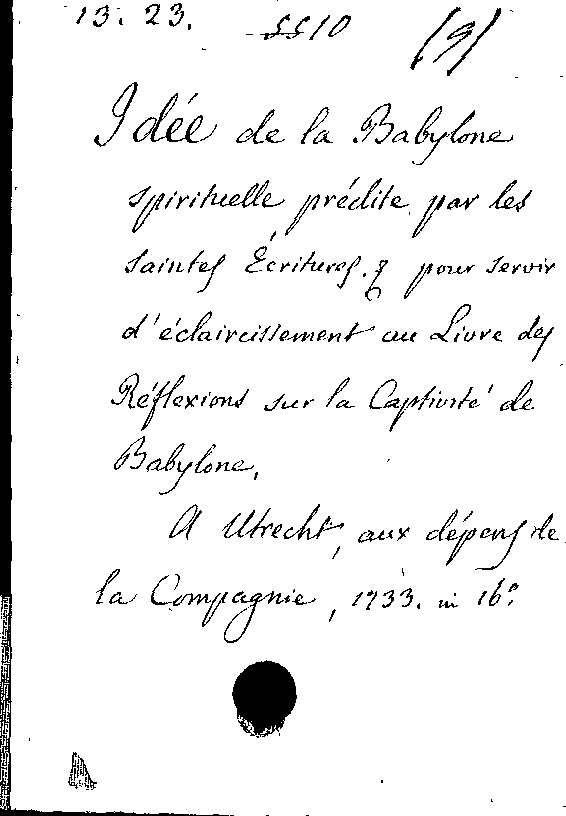 13. 23. SS10 (9)
Idée de la Babylone
spirituelle prédite par les
saintes Écritures. & pour servir
d'éclaircissement au Livre des
Réflexions sur la Captivité de
Babylone.
A Utrecht, aux dépens de
la Compagnie, 1733. in 16º.